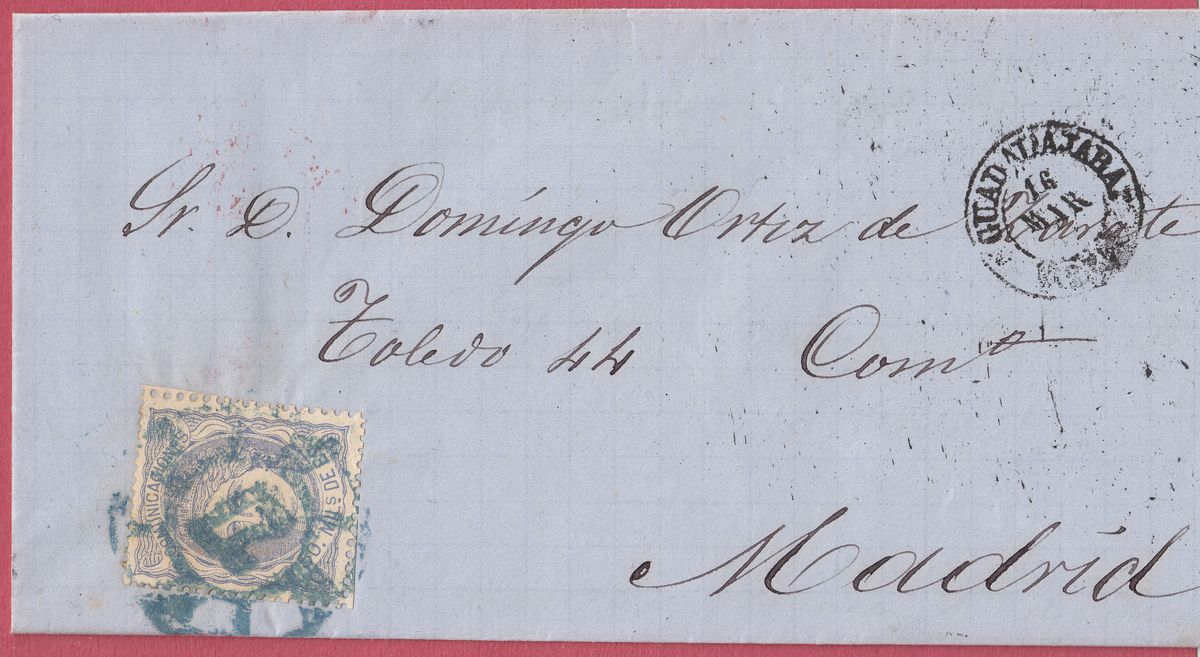 GUADALAJARA
16
MAR
Sr. D. Domíngo Ortiz de Zarate
Toledo 44 Comº
Madríd
COMUNICACIONES
50. MILS DE E